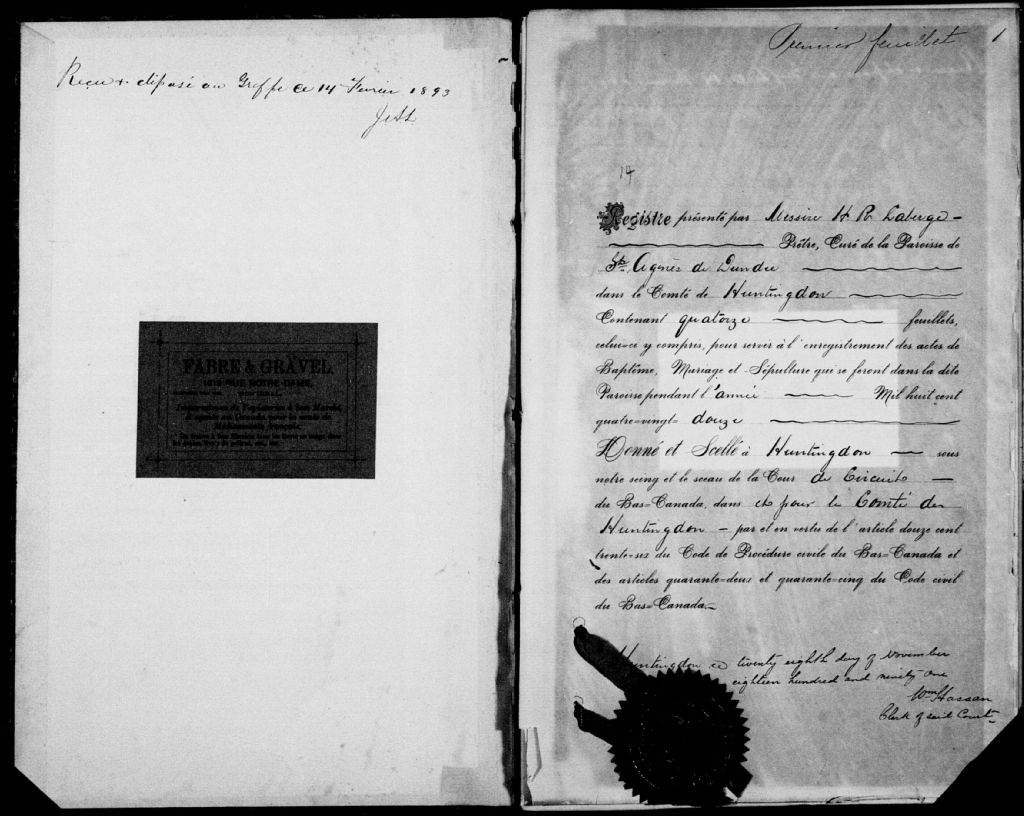 Reçu & déposé au Greffe ce 14 Février 1893
FABRE & GRAVEL
1619 RUE NOTRE-DAME,
MONTRÉAL.
Premier feuillet 1
14
Registre présenté par Messire H R Laberge
Prêtre, Curé de la Paroisse de
St. Agnès de Dundee
dans le Comté de Huntingdon
Contenant quatorze feuillets,
celui-ci y compris, pour servir à l'enregistrement des actes de
Baptême, Mariage et Sépulture qui se feront dans la dite
Paroisse pendant l'année Mil huit cent
quatre-vingt- douze
Donné et Scellé à Huntingdon sous
notre seing et le sceau de la Cour de Circuit
du Bas-Canada, dans et pour le Comté de
Huntingdon – par et en vertu de l'article douze cent
trente-six du Code de Procédure civile du Bas-Canada et
des articles quarante-deux et quarante-cinq du Code civil
du Bas-Canada.
Huntingdon ce twenty eighth day of November
eighteen hundred and ninety one
Wm Hassan
Clerk of said Court